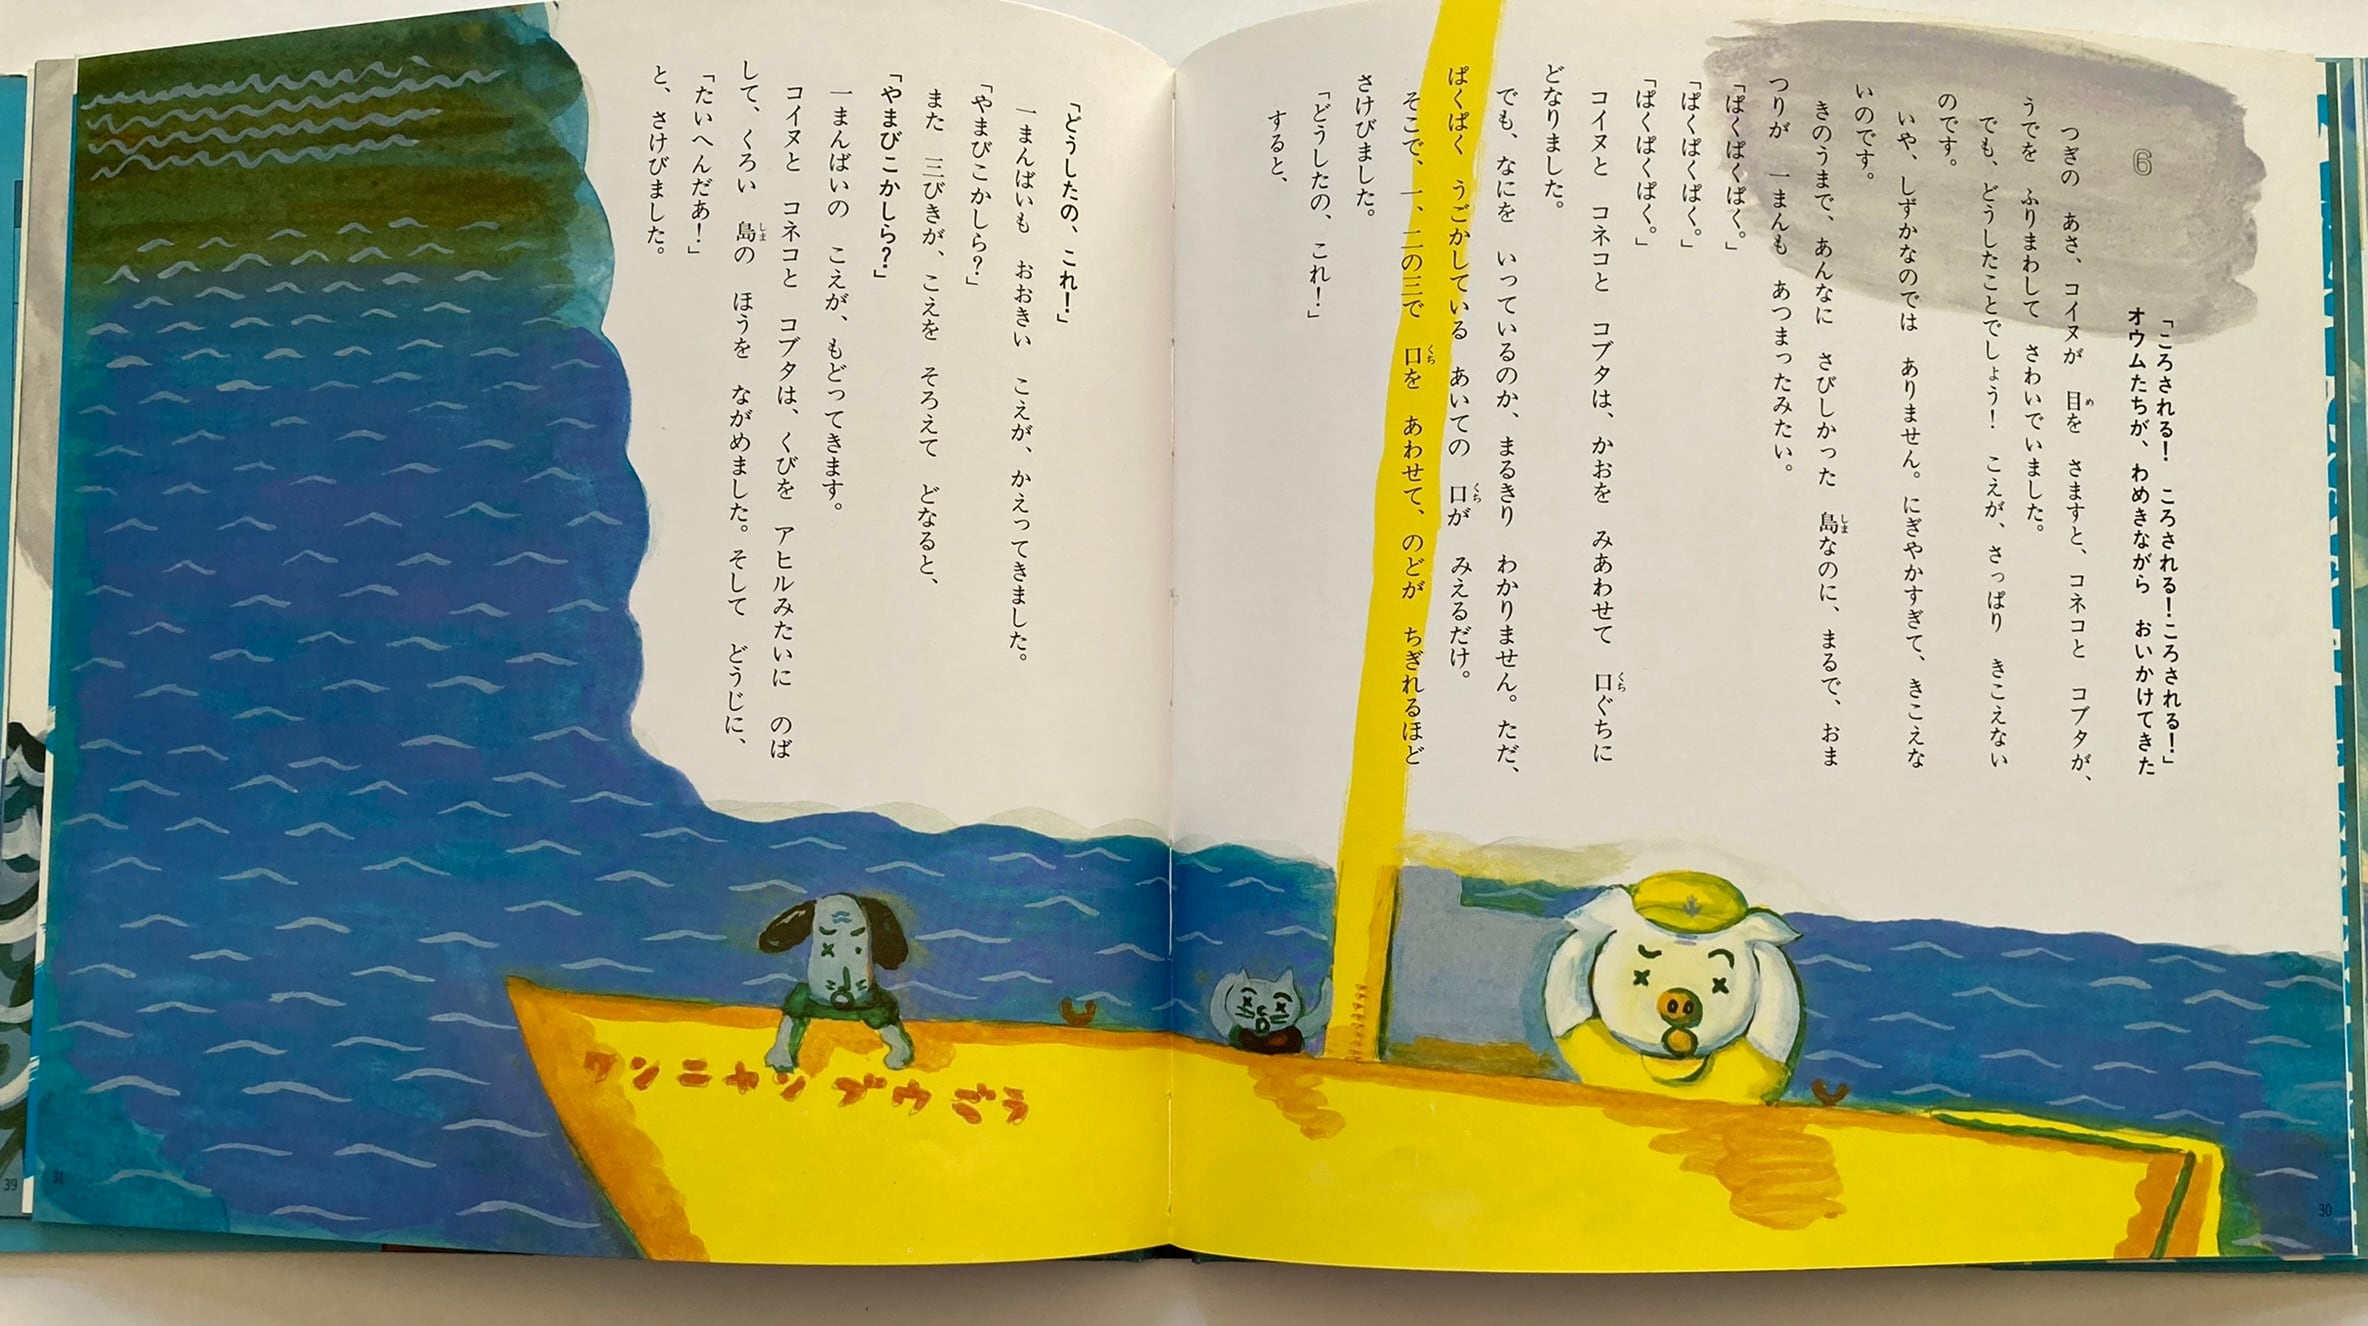 6
「ころされる！　ころされる！ころされる！」
オウムたちが、わめきながら　おいかけてきた
つぎの　あさ、コイヌが　目を　さますと、コネコと　コブタが、
うでを　ふりまわして　さわいでいました。
でも、どうしたことでしょう！　こえが、さっぱり　きこえない
のです。
いや、しずかなのでは　ありません。にぎやかすぎて、きこえな
いのです。
きのうまで、あんなに　さびしかった　島なのに、まるで、おま
つりが　一まんも　あつまったみたい。
「ぱくぱくぱく。」
「ぱくぱくぱく。」
「ぱくぱくぱく。」
コイヌと　コネコと　コブタは、かおを　みあわせて　口ぐちに
どなりました。
でも、なにを　いっているのか、まるきり　わかりません。ただ、
ぱくぱく　うごかしている　あいての　口が　みえるだけ。
そこで、一、二の三で　口を　あわせて、のどが　ちぎれるほど
さけびました。
「どうしたの、これ！」
すると、
30
「どうしたの、これ！」
一まんばいも　おおきい　こえが、かえってきました。
「やまびこかしら？」
また　三びきが、こえを　そろえて　どなると、
「やまびこかしら？」
一まんばいの　こえが、もどってきます。
コイヌと　コネコと　コブタは、くびを　アヒルみたいに　のば
して、くろい　島の　ほうを　ながめました。そして　どうじに、
「たいへんだあ！」
と、さけびました。
ワンニャンブウごう
31
39